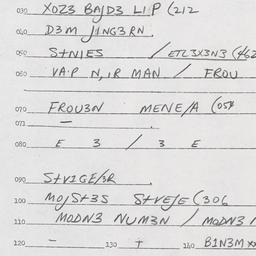 030 XOZ3 BAJD3 LIP (212
040 D3M JING3RN
050 S+NIES / ETL3X3N3 (462
060 VA.P N,IR MAN / FROU
070 FROU3N MENE/A (054
071 —
080 E 3 / 3 E
090 S+VIGE/3R
100 MOJS+3S S+VEJE (306
110 MODN3 NUM3N / MODN3
120 — 130 + 140 B1N3M XX